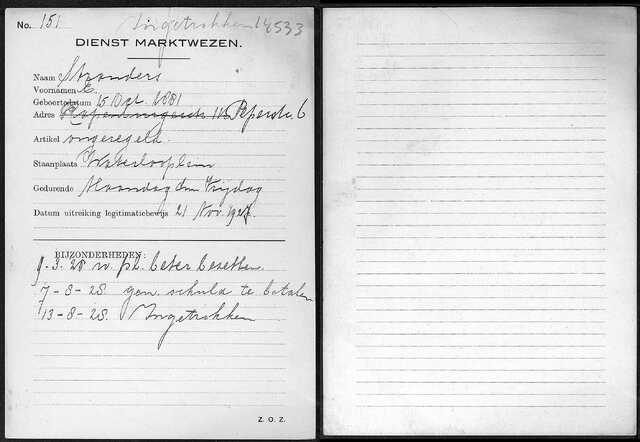 No. 151 Ingetrokken 14533
DIENST MARKTWEZEN.
Naam Stranders
Voornamen E.
Geboortedatum 15 Oct. 1881
Adres 118 Peperstr. 6
Artikel ongeregeld.
Staanplaats Waterlooplein
Gedurende Maandag t/m Vrijdag
Datum uitreiking legitimatiebewijs 21 Nov. 1927.
BIJZONDERHEDEN:
9-3-28 w. pl. beter bezetten.
7-8-28 gen. schuld te betalen
13-8-28. Ingetrokken
Z. O. Z.